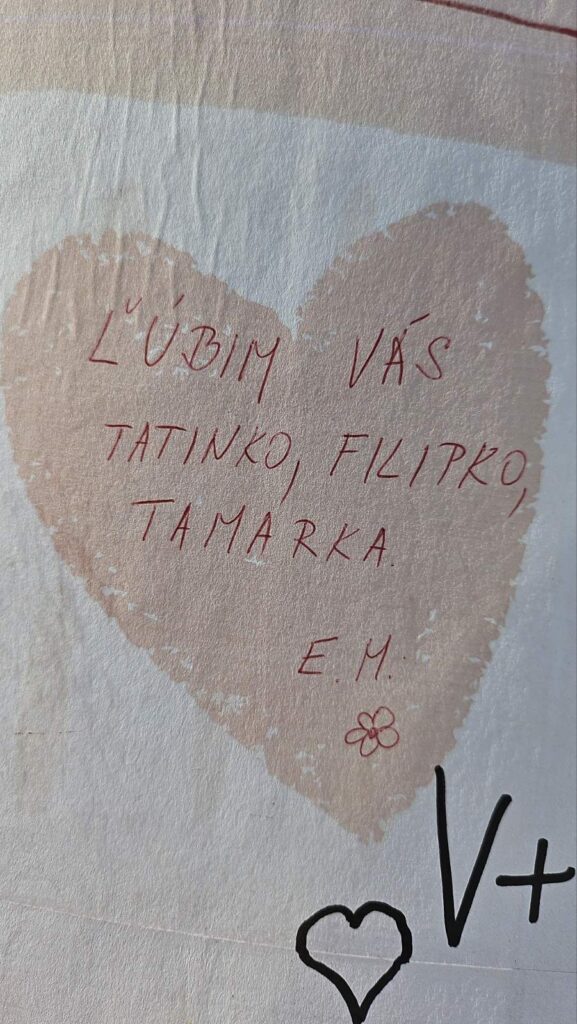 ĽÚBIM VÁS
TATINKO, FILIPKO,
TAMARKA.
E. M.
V+